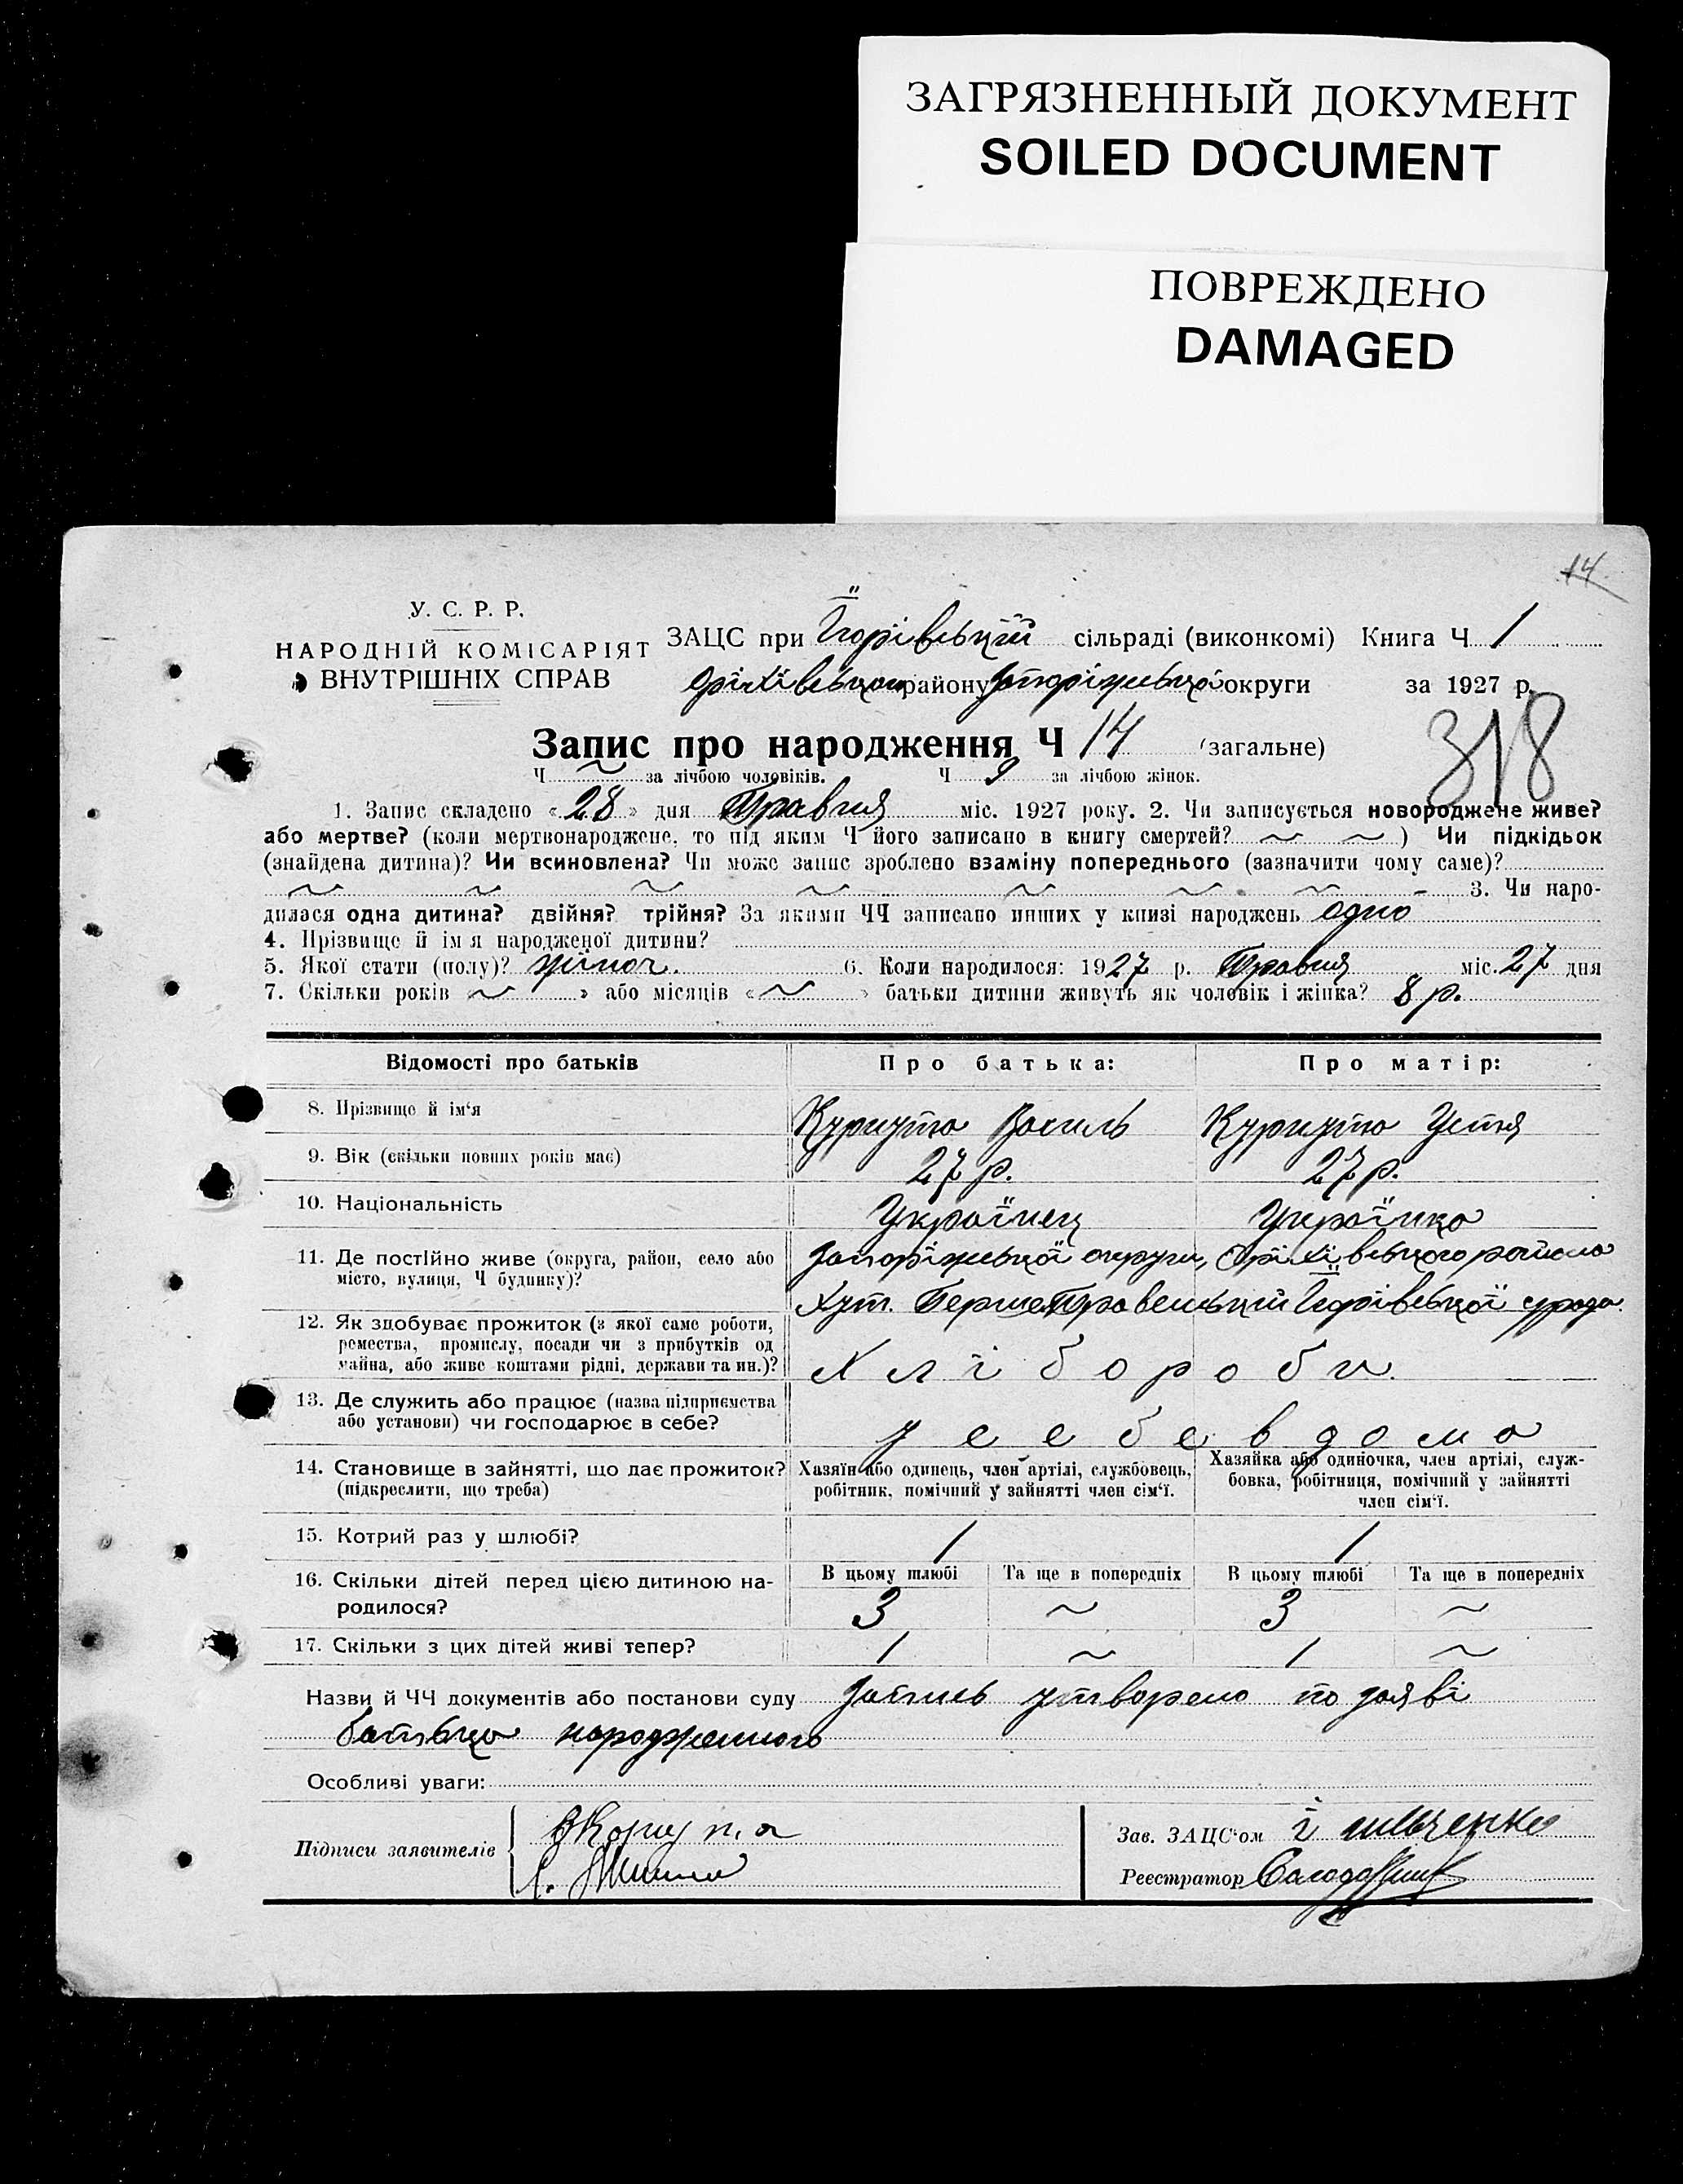 ЗАГРЯЗНЕННЫЙ ДОКУМЕНТ
SOILED DOCUMENT
ПОВРЕЖДЕНО
DAMAGED
14
У. С. Р. Р.
НАРОДНІЙ КОМІСАРІЯТ
ВНУТРІШНІХ СПРАВ
ЗАЦС при сільраді (виконкомі) Книга Ч 1
району округи за 1927 р.
Запис про народження Ч 14 (загальне)
318
Ч ~ за лічбою чоловіків. Ч 9 за лічбою жінок.
1. Запис складено «28» дня Травня міс. 1927 року. 2. Чи записується новороджене живе?
або мертве? (коли мертвонароджене, то під яким Ч його записано в книгу смертей? ~ ~ ) Чи підкідьок
(знайдена дитина)? Чи всиновлена? Чи може запис зроблено взаміну попереднього (зазначити чому саме)?
~ ~ ~ ~ ~ ~ ~ - 3. Чи наро-
дилася одна дитина? двійня? трійня? За якими ЧЧ записано инших у книзі народжень одно
4. Прізвище й ім я народженої дитини?
5. Якої стати (полу)? жіноч. 6. Коли народилося: 1927 р. Травня міс. 27 дня
7. Скільки років ~ » або місяців «~» батьки дитини живуть як чоловік і жінка? 8 р.
Відомості про батьків Про батька: Про матір:
8. Прізвище й ім‘я Василь Устя
9. Вік (скільки повних років має) 27 р. 27 р.
10. Національність Українец Українка
11. Де постійно живе (округа, район, село або Запоріжської округи, Оріхівського района
місто, вулиця, Ч будинку)? Хут. ПершеТравенський
12. Як здобуває прожиток (з якої саме роботи,
ремества, промислу, посади чи з прибутків од
майна, або живе коштами рідні, держави та ин.)? Хлібороби
13. Де служить або працює (назва підприємства
або установи) чи господарює в себе? у себе вдома
14. Становище в зайнятті, що дає прожиток? Хазяїн або одинець, член артілі, службовець, Хазяйка або одиночка, член артілі, служ-
(підкреслити, що треба) робітник, помічний у зайнятті член сім‘ї. бовка, робітниця, помічний у зайнятті
член сім‘ї.
15. Котрий раз у шлюбі? 1 1
16. Скільки дітей перед цією дитиною на- В цьому шлюбі Та ще в попередніх В цьому шлюбі Та ще в попередніх
родилося? 3 ~ 3 ~
17. Скільки з цих дітей живі тепер? 1 ~ 1 ~
Назви й ЧЧ документів або постанови суду Запись утворено по заяві
батька народженного
Особливі уваги:
Підписи заявителів
Зав. ЗАЦС‘ом
Реєстратор